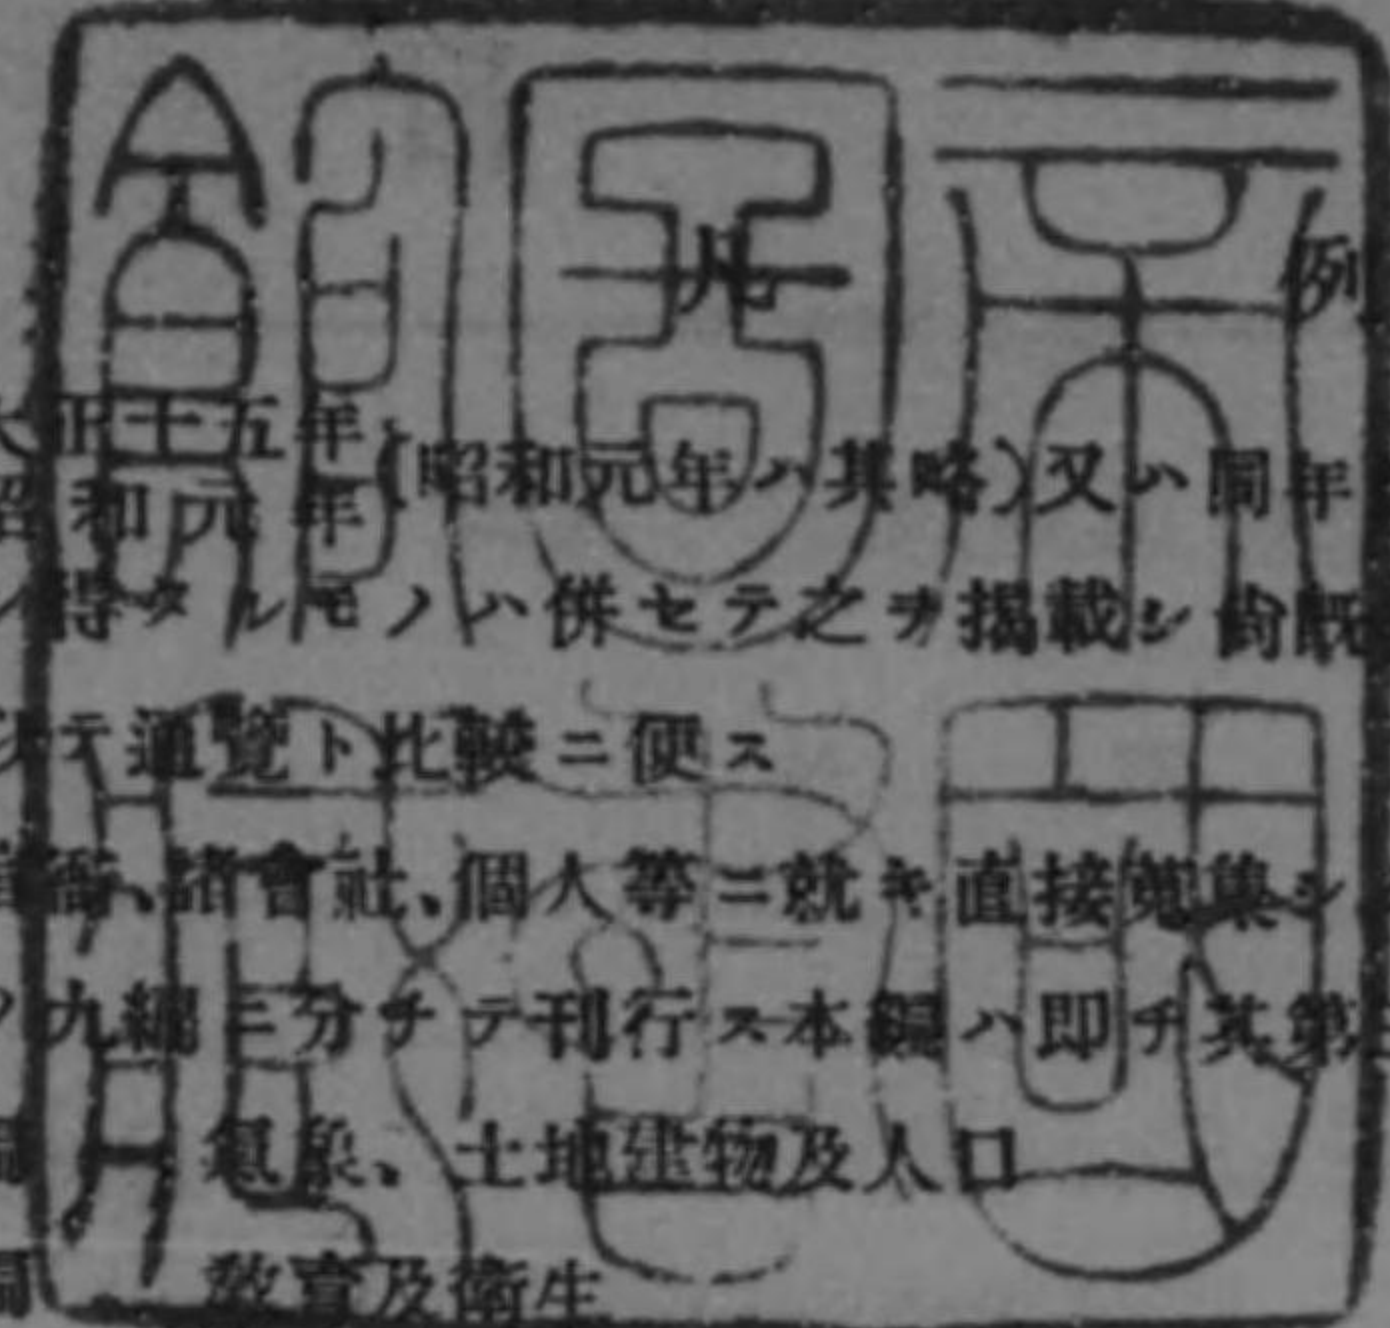 凡例
大正十五年
昭和元年
(昭和元年ハ其略)又ハ同年
得タルモノハ併セテ之ヲ揭載シ尙既
テ通覽ト比較ニ便ス
諸會社、個人等ニ就キ直接蒐集シ
九編ニ分チテ刊行ス本編ハ即チ其第
氣象、土地建物及人口
敎育及衞生
帝國圖書館藏